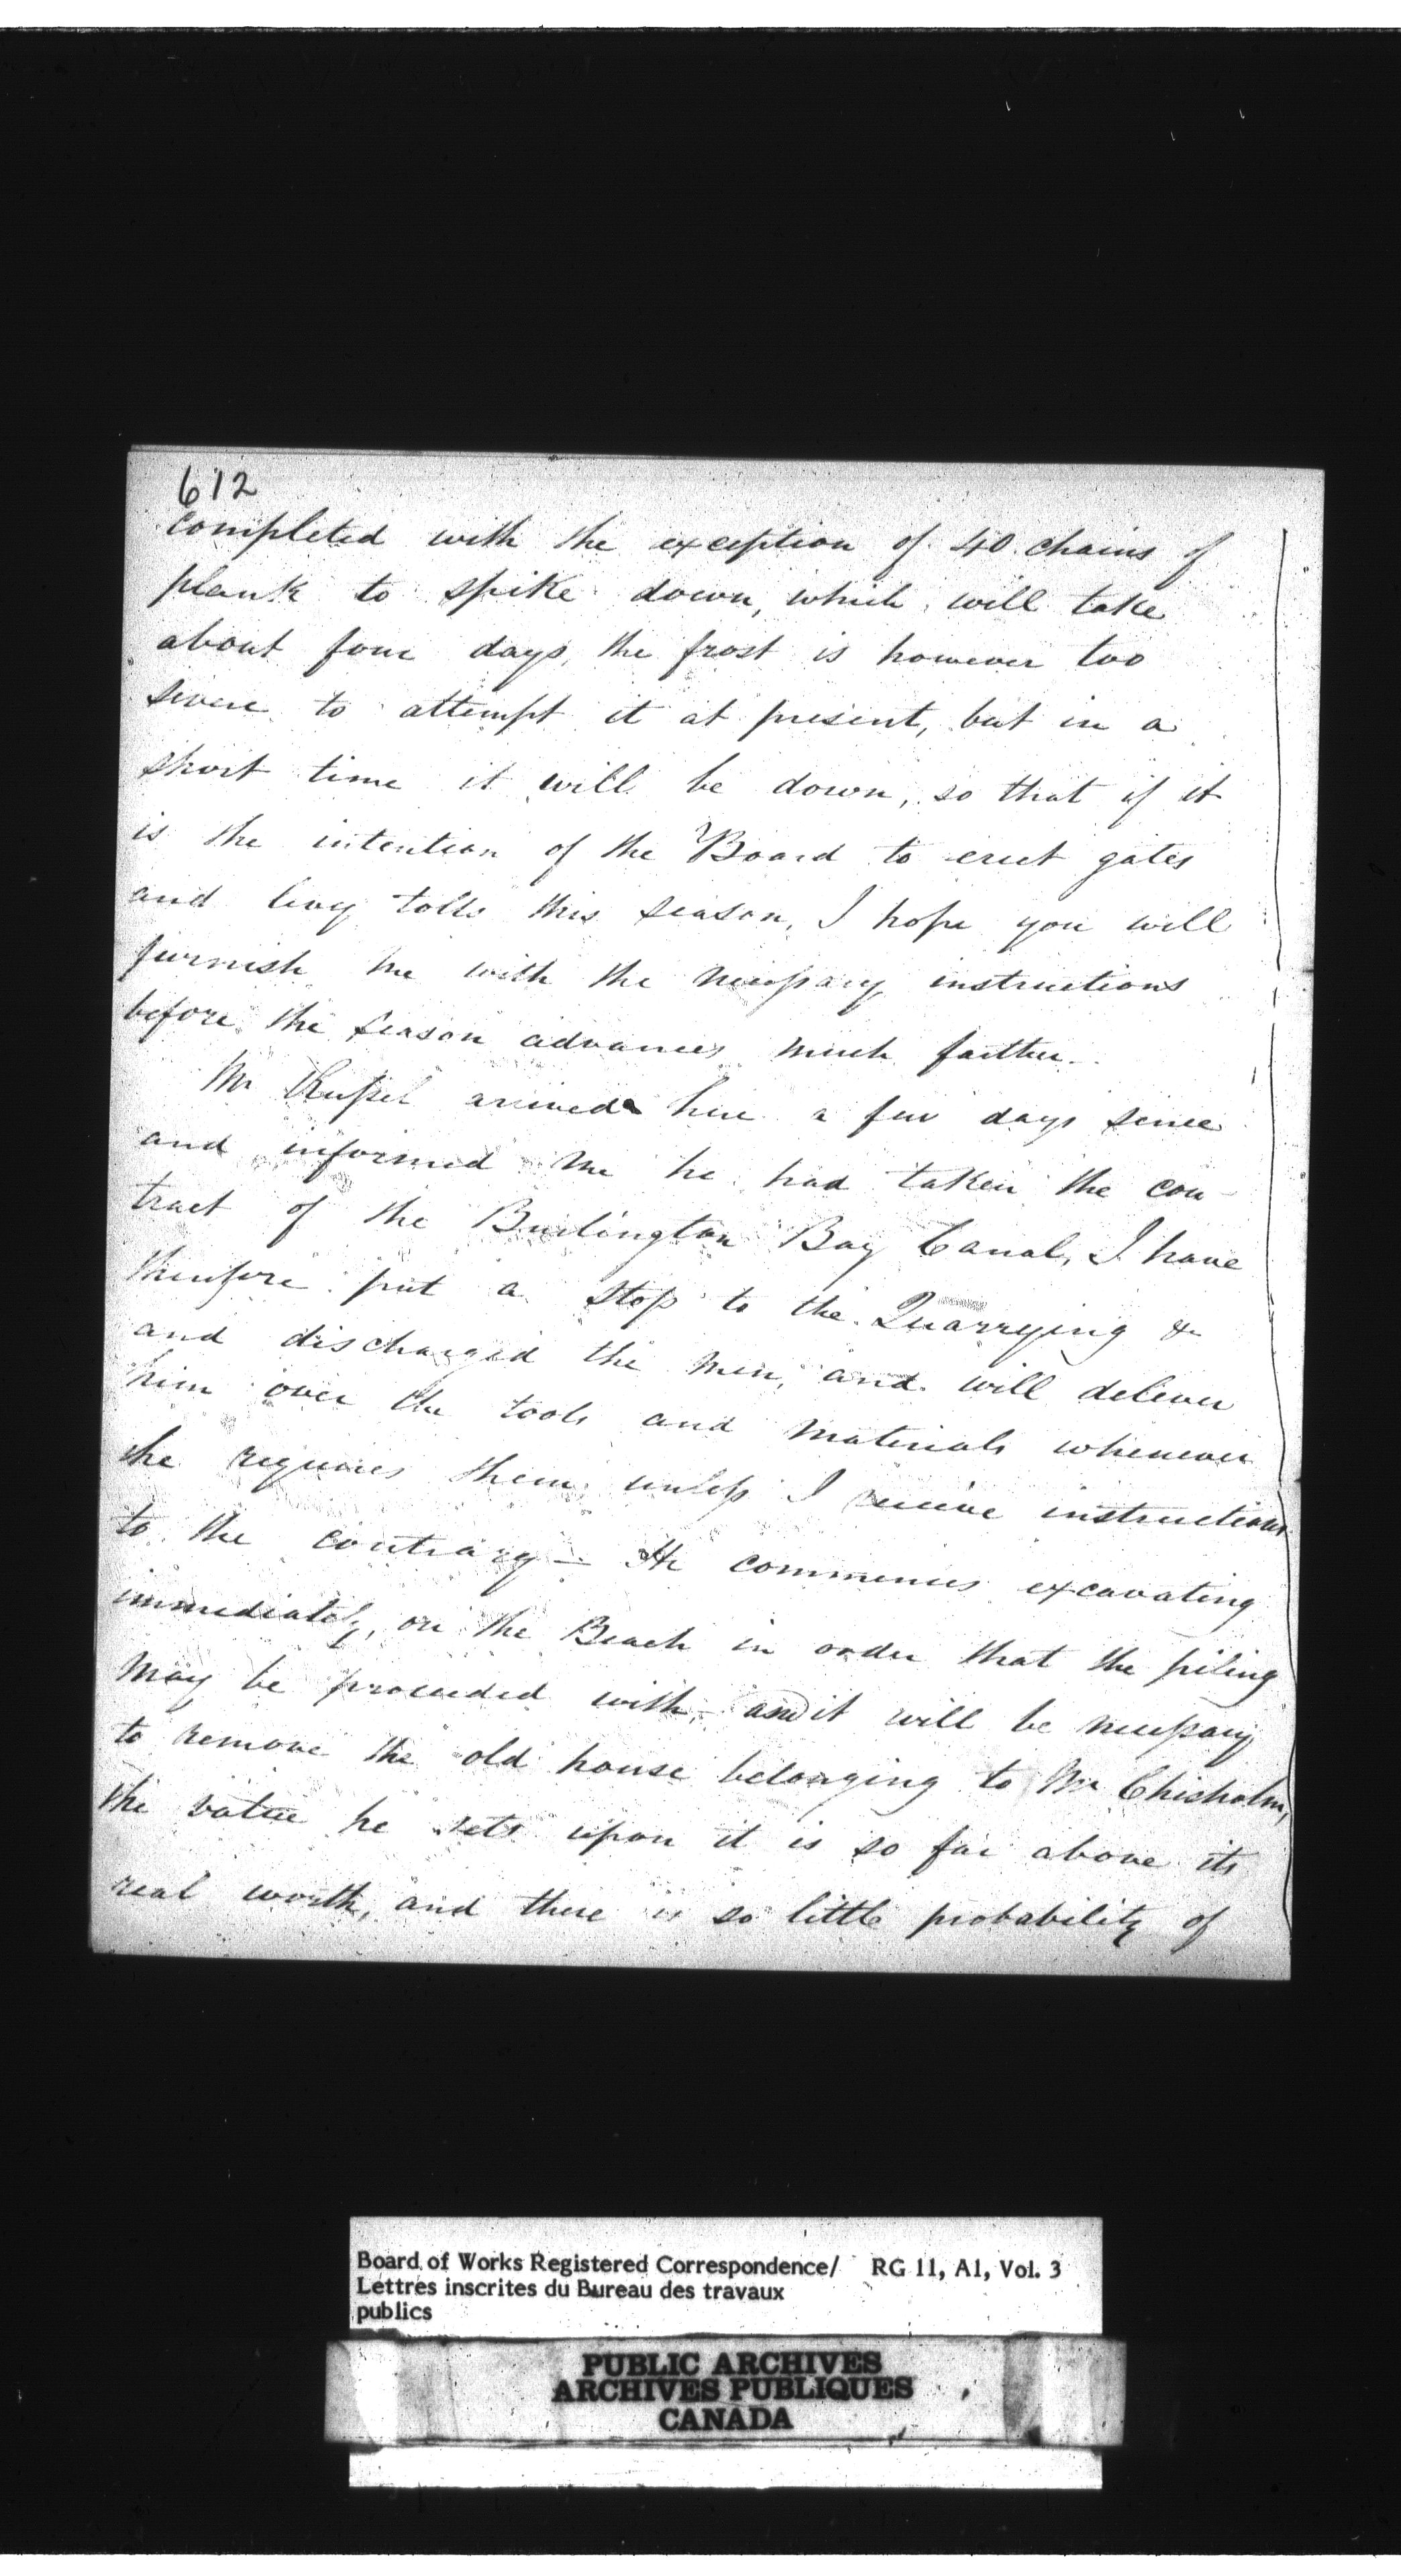 612
completed with the exception of 40 chains of
plank to spike down, which will take
about four days, the frost is however too
severe to attempt it at present, but in a
short time it will be down, so that if it
is the intention of the Board to erect gates
and levy tolls this season, I hope you will
furnish me with the necessary instructions
before the season advances much farther.
Mr Russel arrived here a few days since
and informed me he had taken the con-
tract of the Burlington Bay Canal, I have
therefore put a stop to the Quarrying &c
and discharged the men, and will deliver
him over the tools and materials whenever
he requires them unless I receive instructions
to the contrary — He commences excavating
immediately, on the Beach in order that the piling
may be proceeded with, and it will be necessary
to remove the old house belonging to Mr Chisholm,
the value he sets upon it is so far above its
real worth, and there is so little probability of
Board of Works Registered Correspondence/ RG 11, A1, Vol. 3
Lettres inscrites du Bureau des travaux
publics
PUBLIC ARCHIVES
ARCHIVES PUBLIQUES
CANADA